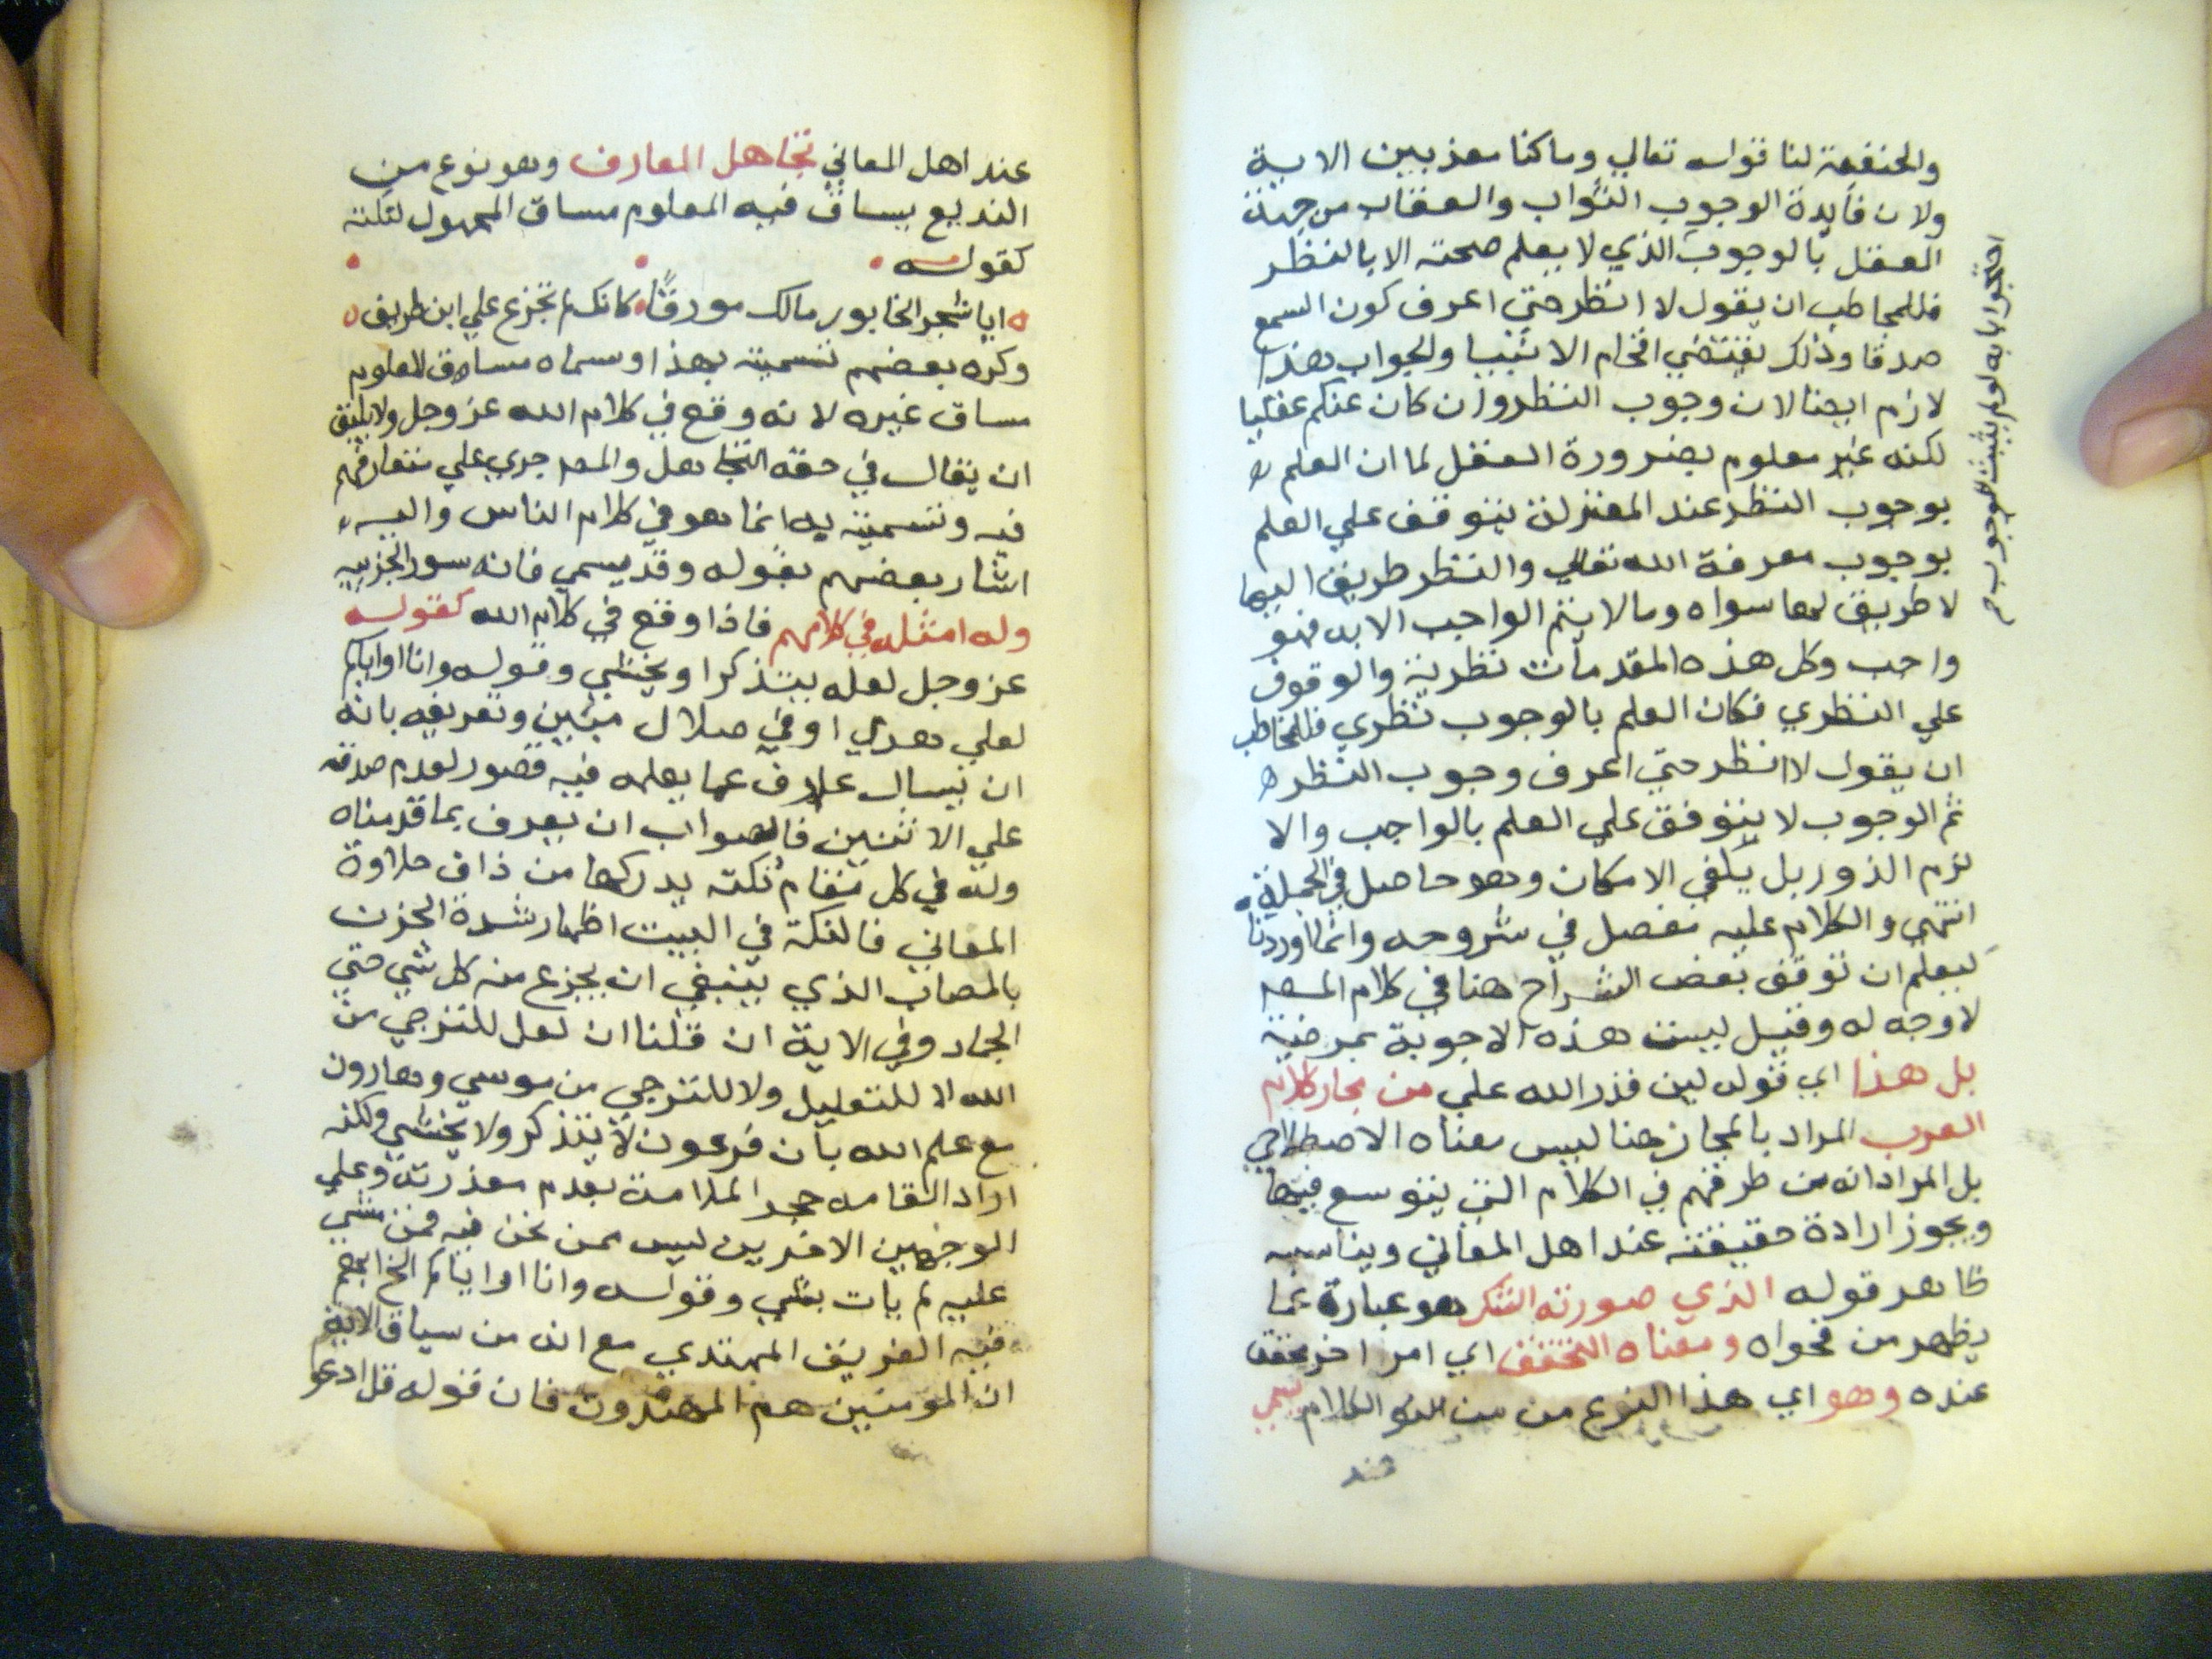 والحنفية لنا قوله تعالي وما كنا معذبين الاية
ولان فايدة الوجوب الثواب والعقاب من جهة
العقل بالوجوب الذي لا يعلم صحته الا بالنظر
فللمخاطب ان يقول لا انظر حتي اعرف كون السمع
صدقا وذلك يقتضي افحام الانبيا والجواب هذا
لازم ايضا لان وجوب النظر وان كان عنكم عقليا
لكنه غير معلوم بضرورة العقل لما ان العلم
بوجوب النظر عند المعتزلة يتوقف علي العلم
بوجوب معرفة الله تعالي والنظر طريق اليها
لا طريق لها سواه وما لا يتم الواجب الا به فهو
واجب وكل هذه المقدمات نظرية والوقوف
علي النظري فكان العلم بالوجوب نظري فللمخاطب
ان يقول لا انظر حتي اعرف وجوب النظر
ثم الوجوب لا يتوقف علي العلم بالواجب والا
لزم الدور بل يكفي الامكان وهو حاصل في الجملة
انتهي والكلام عليه مفصل في شروحه وانما اوردنا
ليعلم ان توقف بعض الشراح هنا في كلام المصـ
لا وجه له وقيل ليست هذه الاجوبة بمرضية
بل هذا اي قوله لين قدر الله علي من مجاز كلام
العرب المراد بالمجاز هنا ليس معناه الاصطلاحي
بل المراد انه من طرقهم في الكلام التي يتوسع فيها
ويجوز ارادة حقيقته عند اهل المعاني ويناسبه
ظاهر قوله الذي صورته الشك هو عبارة عما
يظهر من فحواه ومعناه التحقق اي امر اخر محقق
عنده وهو اي هذا النوع من الكلام يسمي
عند
احتجوا بانه لو لم يثبت الوجوب
عند اهل المعاني تجاهل العارف وهو نوع من
البديع يساق فيه المعلوم مساق المجهول لنكتة
كقوله
ايا شجر الخابور مالك مورقا كانك لم تجزع علي ابن طريف
وكره بعضهم تسميته بهذا وسماه مساق المعلوم
مساق غيره لانه وقع في كلام الله عز وجل ولا يليق
ان يقال في حقه التجاهل والمصـ جري علي متعارفهم
فيه وتسميته به انما هو في كلام الناس واليه
اشار بعضهم بقوله وقد يسمي فانه سور الجزيية
وله امثلة في كلامهم فاذا وقع في كلام الله كقوله
عز وجل لعله يتذكر او يخشي وقوله وانا او اياكم
لعلي هدي او في ضلال مبين وتعريفه بانه
ان يسال عارف عما يعلمه فيه قصور لعدم صدقه
علي الاثنين فالصواب ان يعرف بما قدمناه
وله في كل مقام نكتة يدركها من ذاق حلاوة
المعاني فالنكتة في البيت اظهار شدة الحزن
بالمصاب الذي ينبغي ان يجزع منه كل شي حتي
الجماد وفي الاية ان قلنا ان لعل للترجي من
الله لا للتعليل ولا للترجي من موسي وهارون
مع علم الله بان فرعون لا يتذكر ولا يخشي ولكنه
اراد القامه حجر الملامة بعدم معذرته وعلي
الوجهين الاخرين ليس ممن نحن فيه فمن مشي
عليه لم يات بشي وقوله وانا او اياكم الخ ابهم
فيه الفريق المهتدي مع انه من سياق الاية
ان المومنين هم المهتدون فان قوله قل ادعو